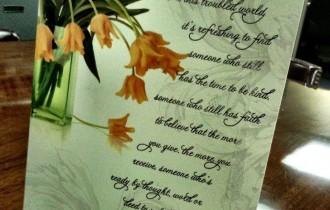 this troubled world
it's refreshing to find
someone who still
has the time to be kind,
someone who still has faith
to believe that the more
you give, the more you
receive, someone who's
ready by thought, word or
deed to